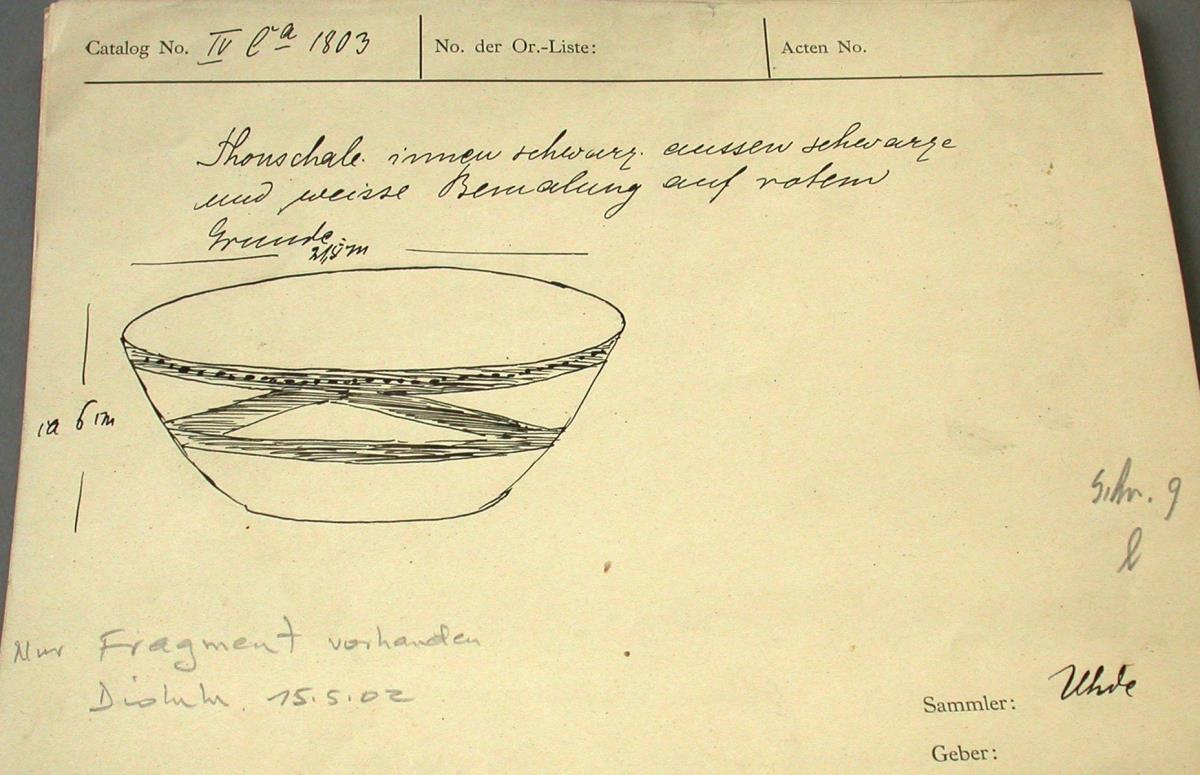 Catalog No. IV Ca 1803
No. der Or.-Liste:
Acten No.
Thonschale innen schwarz. aussen schwarze
und weisse Bemalung auf rotem
Grunde.
21,5 cm
ca 6 cm
Schr. 9
Nur Fragment vorhanden
15.5.02
Sammler: Uhde
Geber: